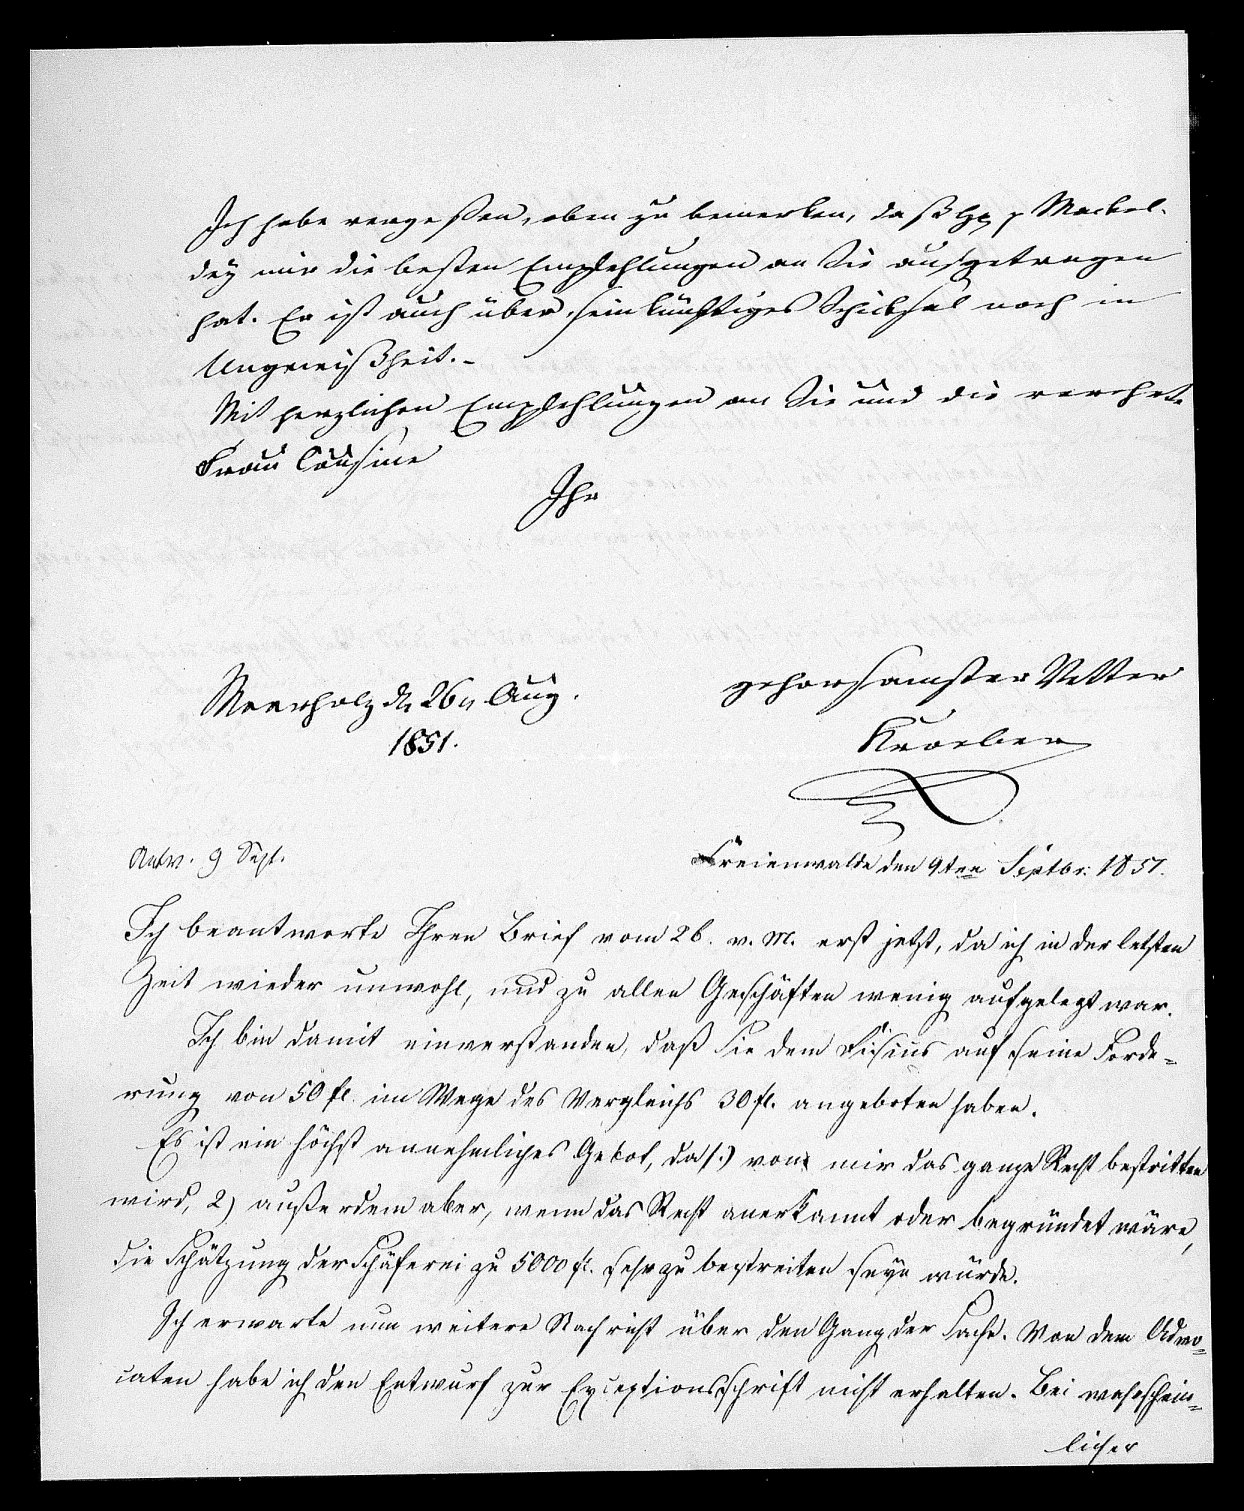 Ich habe vergeßen, oben zu bemerken, daß H. p Mackel-
dey mir die besten Empfehlungen an Sie aufgetragen
hat. Er ist auch über sein künftiges Schicksal noch in
Ungewißheit.-
Mit herzlichen Empfehlungen an Sie und die verehrte
Frau Cousine
Ihr
gehorsamster Vetter
Meerholz d. 26n Aug.
1851.
Kroeber
Antw. 9 Sept.
Freienwalde den 9ten Septbr: 1851.
Ich beantworte Ihren Brief vom 26. v. M. erst jetzt, da ich in der letzten
Zeit wieder unwohl, und zu allen Geschäften wenig aufgelegt war.
Ich bin damit einverstanden, daß Sie dem Fiscus auf seine Forde=
rung von 50 fl. im Wege des Vergleichs 30 fl. angeboten haben.
Es ist ein höchst annehmliches Gebot, da 1.) von mir das ganze Recht bestritten
wird, 2) außerdem aber, wenn das Recht anerkannt oder begründet wäre,
die Schätzung der Schäferei zu 5000 fl. sehr zu bestreiten seyn würde.
Ich erwarte nun weitere Nachricht über den Gang der Sache. Von dem Advo=
caten habe ich den Entwurf zur Exceptionsschrift nicht erhalten. Bei wahrschein=
licher